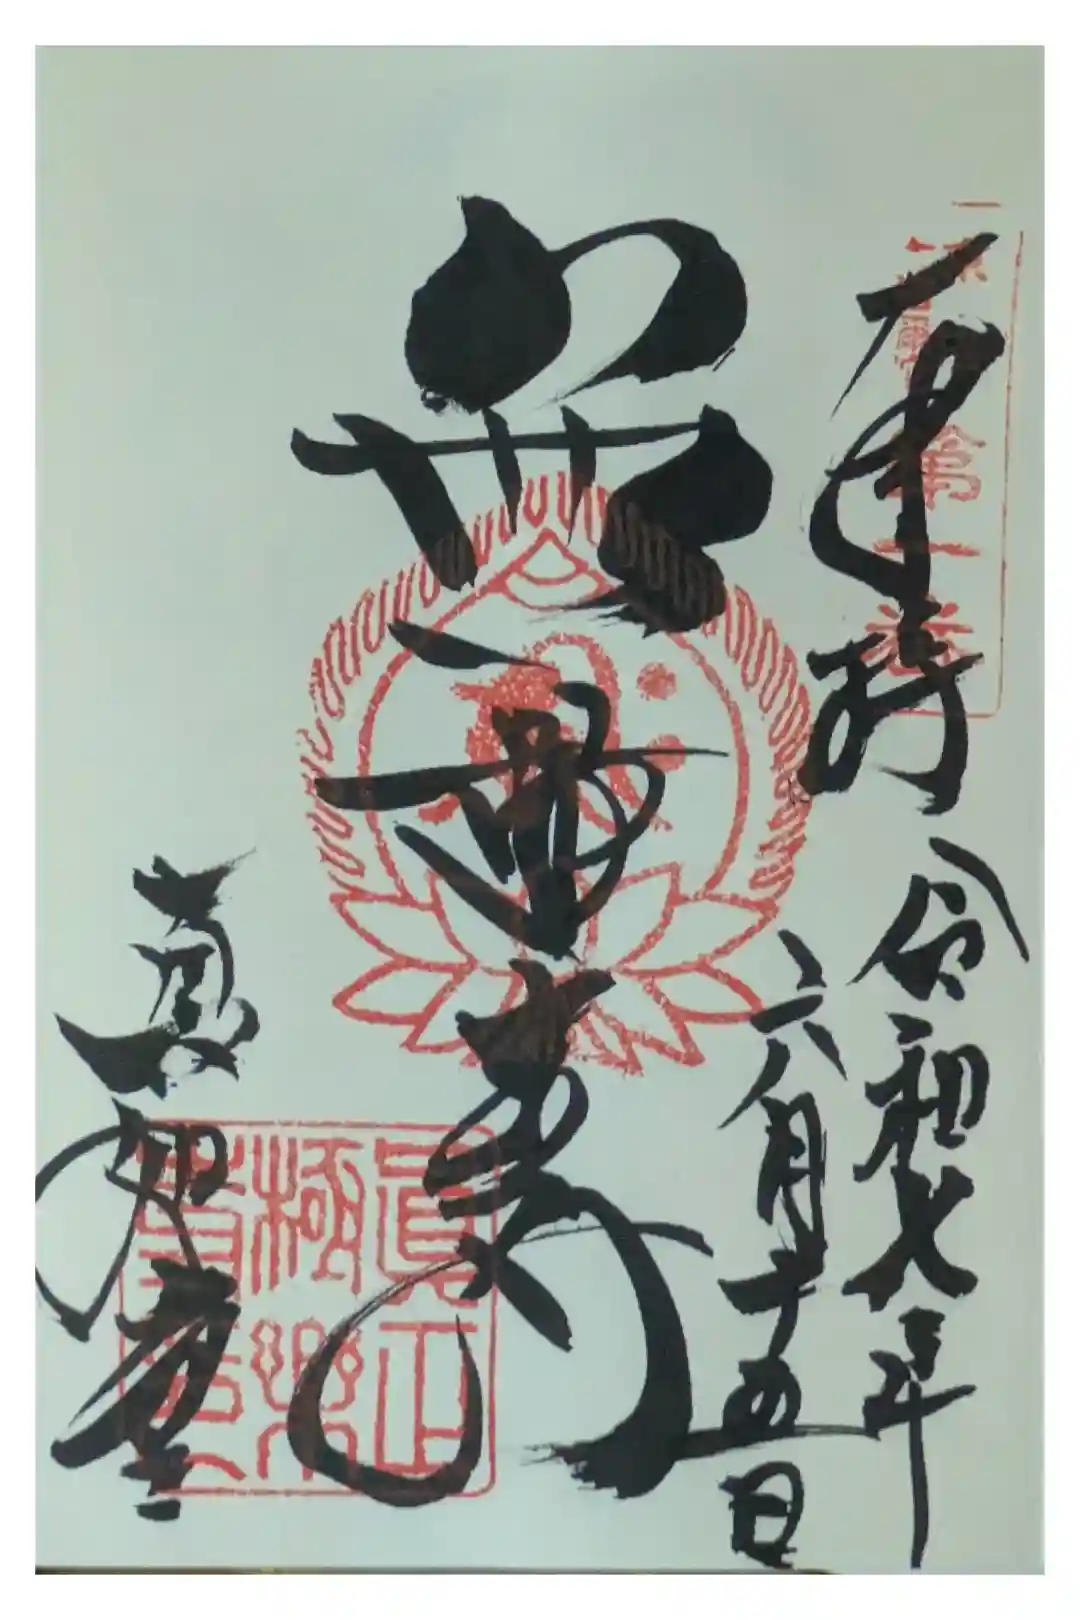 奉拝
令和七年
六月十五日
第一番
無量寿
真如堂
眞正
極樂